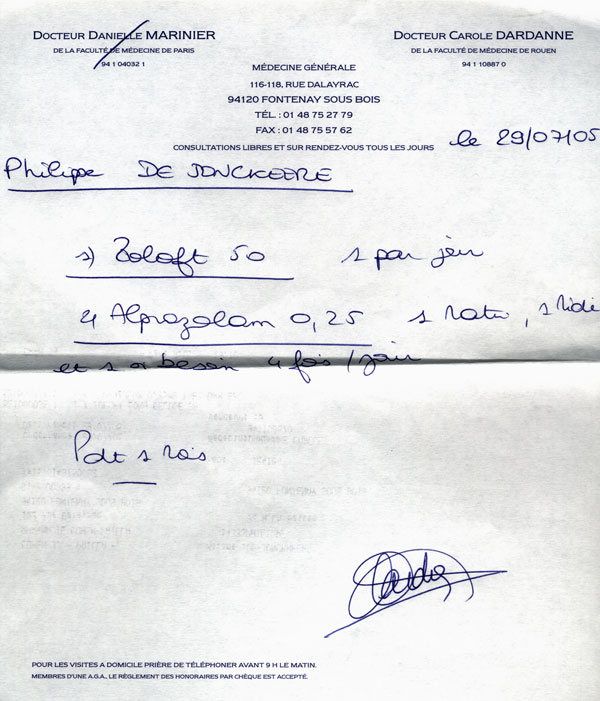 DOCTEUR DANIELLE MARINIER
DE LA FACULTÉ DE MÉDECINE DE PARIS
94 1 04032 1
DOCTEUR CAROLE DARDANNE
DE LA FACULTÉ DE MÉDECINE DE ROUEN
94 1 10887 0
MÉDECINE GÉNÉRALE
116-118, RUE DALAYRAC
94120 FONTENAY SOUS BOIS
TÉL. : 01 48 75 27 79
FAX : 01 48 75 57 62
CONSULTATIONS LIBRES ET SUR RENDEZ-VOUS TOUS LES JOURS
le 29/07/05
Philippe DE JONCKEERE
1) Zoloft 50 1 par jour
2) Alprazolam 0,25 1 matin, 1 midi
et 1 si besoin 4 fois / jour
Pdt 1 mois
POUR LES VISITES A DOMICILE PRIÈRE DE TÉLÉPHONER AVANT 9 H LE MATIN.
MEMBRES D'UNE A.G.A., LE RÈGLEMENT DES HONORAIRES PAR CHÈQUE EST ACCEPTÉ.